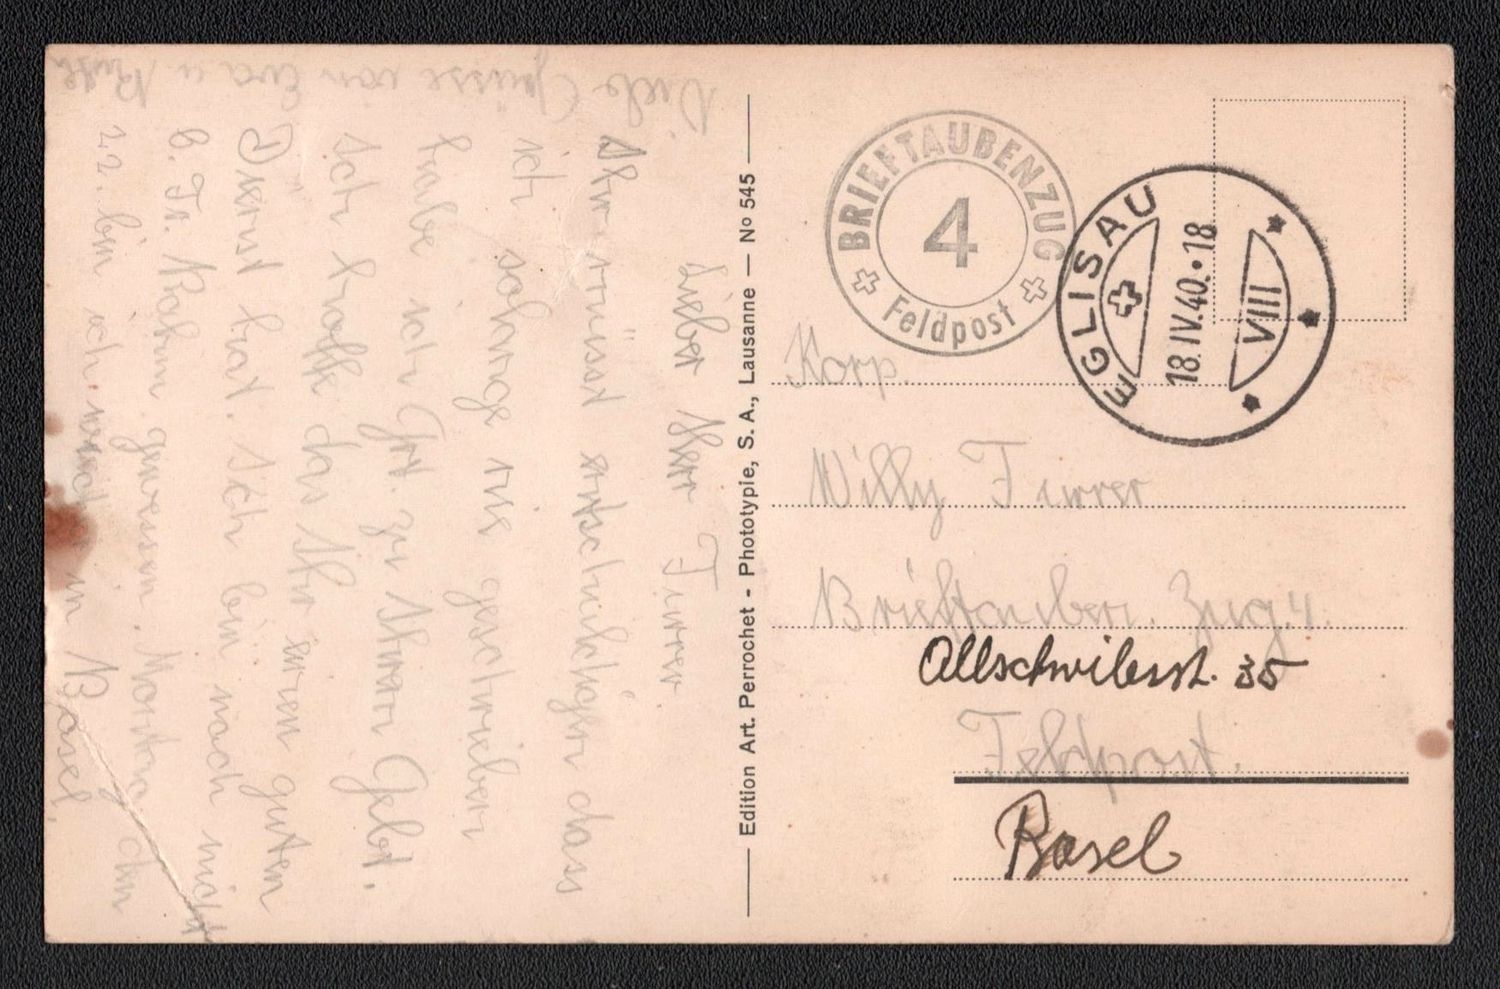 Lieber Herr Furrer
Ihr müsst entschuldigen dass
ich solange nie geschrieben
habe ich Grt. zu Ihnen Gebt.
Ich hoffe das Ihr einen guten
Dienst hat. Ich bin noch nicht
b. Fr. Rahm gewesen. Montag den
22. bin ich in Basel
Viele Grüsse von Eva u Ruth
Edition Art. Perrochet - Phototypie, S. A., Lausanne — No 545
BRIEFTAUBENZUG
4
Feldpost
EGLISAU
18.IV.40.18
VIII
Korp.
Willy Furrer
Brieftauben. Zug. 4.
Allschwilerst. 35
Feldpost.
Basel